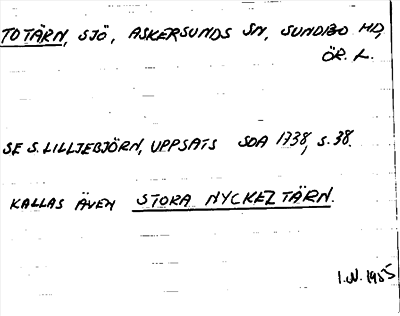 TOTÄRN, SJÖ, ASKERSUNDS SN, SUNDBO HD,
ÖR. L.
SE S. LILLJEBJÖRN, UPPSATS SOA 1738, S. 38.
KALLAS ÄVEN STORA NYCKELTÄRN.
I.N. 1985